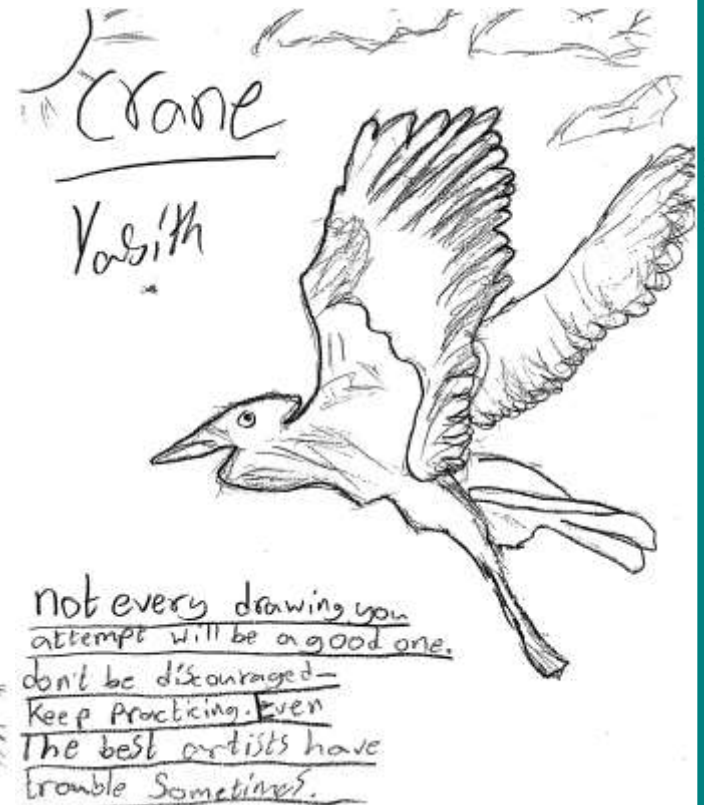 Crane
Yasith
not every drawing you
attempt will be a good one.
don't be discouraged-
Keep practicing. Even
The best artists have
trouble Sometimes.